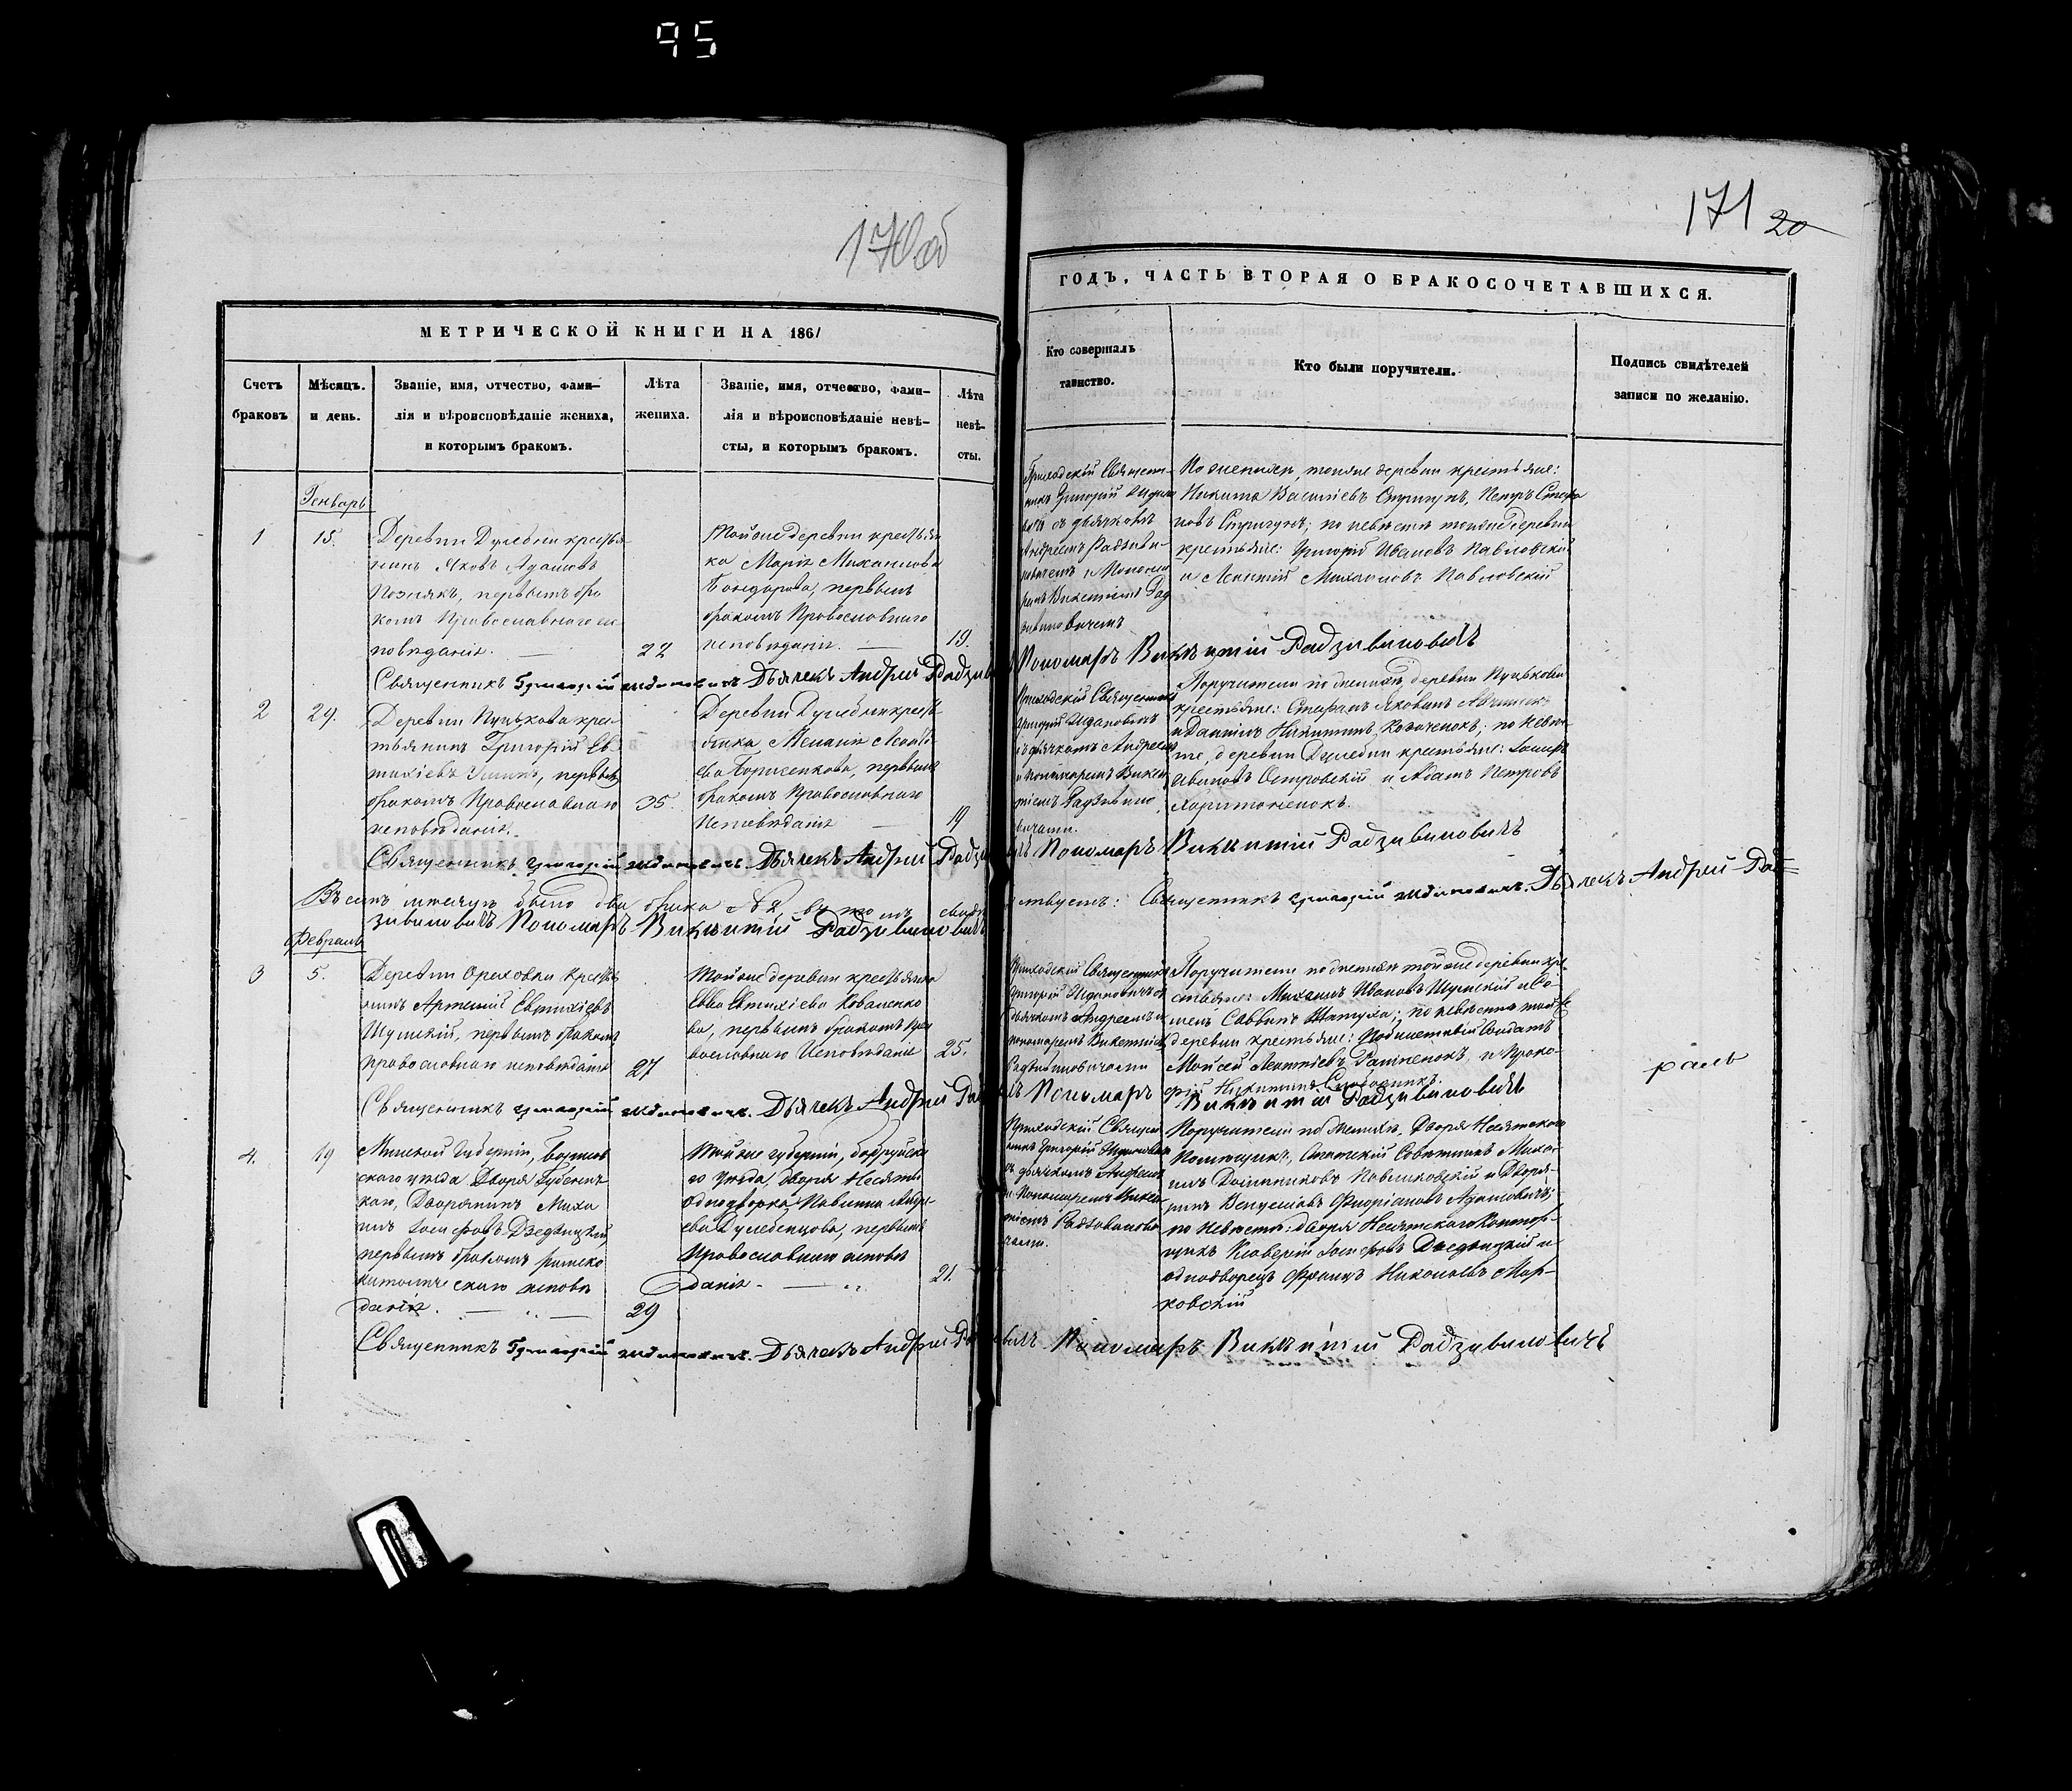 95
170об
171 20
МЕТРИЧЕСКОЙ КНИГИ НА 1861
ГОДЪ, ЧАСТЬ ВТОРАЯ О БРАКОСОЧЕТАВШИХСЯ.
Счетъ браковъ
Мѣсяцъ. и день.
Званіе, имя, отчество, фами-
лія и вѣроисповѣданіе жениха,
и которымъ бракомъ.
Лѣта жениха.
Званіе, имя, отчество, фами-
лія и вѣроисповѣданіе невѣ-
сты, и которымъ бракомъ.
Лѣта невѣ-
сты.
Кто совершалъ
таинство.
Кто были поручители.
Подпись свидѣтелей
записи по желанію.
Генварь
1
15.
Деревни Дулебни крестья
нинъ Яковъ Адамовъ
Познякъ, первымъ бра
комъ Православнаго ис
повѣданія.
22
Тойже деревни крестьян
ка Марія Михаилова
Бондарева, первымъ
бракомъ Православнаго
исповѣданія.
19.
Приходскій Священ-
никъ Григорій
вичъ съ дьячкомъ
Андреемъ Радзиви-
ловичемъ и Понома
ремъ Викентіемъ Рад
зивиловичемъ
По женихѣ, тойже деревни крестьяне:
Никита Васильевъ Стригунъ, Петръ Стефа
новъ Стригунъ; по невѣстѣ тойже деревни
крестьяне: Григорій Ивановъ Павловскій
и Леонтій Михайловъ Павловскій
Священникъ Григорій Ждановичъ. Дьячекъ Андрей Радзивиловичъ Пономаръ Викентій Радзивиловичъ
2
29.
Деревни Пуцькова крес-
тьянинъ Григорій Ев
тихіевъ первымъ
бракомъ Православнаго
исповѣданія.
35.
Деревни Дулебни кресть
янка Меланія Леонть
ева Борисенкова, первымъ
бракомъ Православнаго
Исповѣданія
19
Приходскій Священникъ
Григорій Ждановичъ
съ дьячкомъ Андреемъ
и Пономаремъ Викен
тіемъ Радзивило
вичами.
Поручители по женихѣ, деревни Пуцькова
крестьяне: Стефанъ Яковинъ
и Даніилъ Никитинъ Козаченокъ; по невѣс-
тѣ, деревни Дулебни крестьяне: Іосифъ
Ивановъ Островскій и Адамъ Петровъ
Харитоненокъ.
Священникъ Григорій Ждановичъ. Дьячекъ Андрей Радзивиловичъ Пономаръ Викентій Радзивиловичъ
Въ семъ мѣсяцѣ было два брака № 2, въ томъ свидѣтельствуемъ: Священникъ Григорій Ждановичъ. Дьячекъ Андрей Рад=
зивиловичъ Пономаръ Викентій Радзивиловичъ
Февраль
3
5.
Деревни Ореховки крестья
нинъ Артемій Евтихіевъ
Шумскій, первымъ бракомъ
православнаго исповѣданія
27
Тойже деревни крестьянка
Евва Евтихіева Коваленко
ва, первымъ бракомъ Пра
вославнаго Исповѣданія
25.
Приходскій Священникъ
Григорій Ждановичъ съ
дьячкомъ Андреемъ и
пономаремъ Викентіемъ
Радзивиловичами
Поручители по женихѣ тойже деревни кре-
стьяне: Михаилъ Ивановъ Шумскій и Се-
менъ Саввинъ Шатуха; по невѣстѣ тойже
деревни крестьяне: солдатъ
Моисей Леонтіевъ и Проко-
фій Никитинъ
раль
Священникъ Григорій Ждановичъ. Дьячекъ Андрей Радзивиловичъ Пономаръ Викентій Радзивиловичъ
4.
19
Минской Губерніи,
скаго уѣзда Двора
каго, Дворянинъ Миха
илъ Іосифовъ Дзедзицкій
первымъ бракомъ римско
католическаго исповѣ
данія.
29
Тойже губерніи, Бобруйска
го Уѣзда, двора Несяты
однодворка Павлина Андре
ева Дулебенцова, первымъ
Православнаго исповѣ
данія.
21.
Приходскій Священ
никъ Григорій Ждановичъ
съ дьячкомъ Андреемъ
и Пономаремъ Викен
тіемъ Радзивилови
чами.
Поручители по женихѣ, Двора Несятскаго
Помѣщикъ, Статскій Совѣтникъ Миха-
илъ Доминиковъ Павликовскій и Дворя-
нинъ Венцеславъ Флоріановъ Адамовичъ;
по невѣстѣ: двора Несятскаго Контор-
щикъ Ксаверій Іосифовъ Дзедзицкій и
однодворецъ Францъ Николаевъ Мар-
ковскій
Священникъ Григорій Ждановичъ. Дьячекъ Андрей Радзивиловичъ Пономаръ Викентій Радзивиловичъ